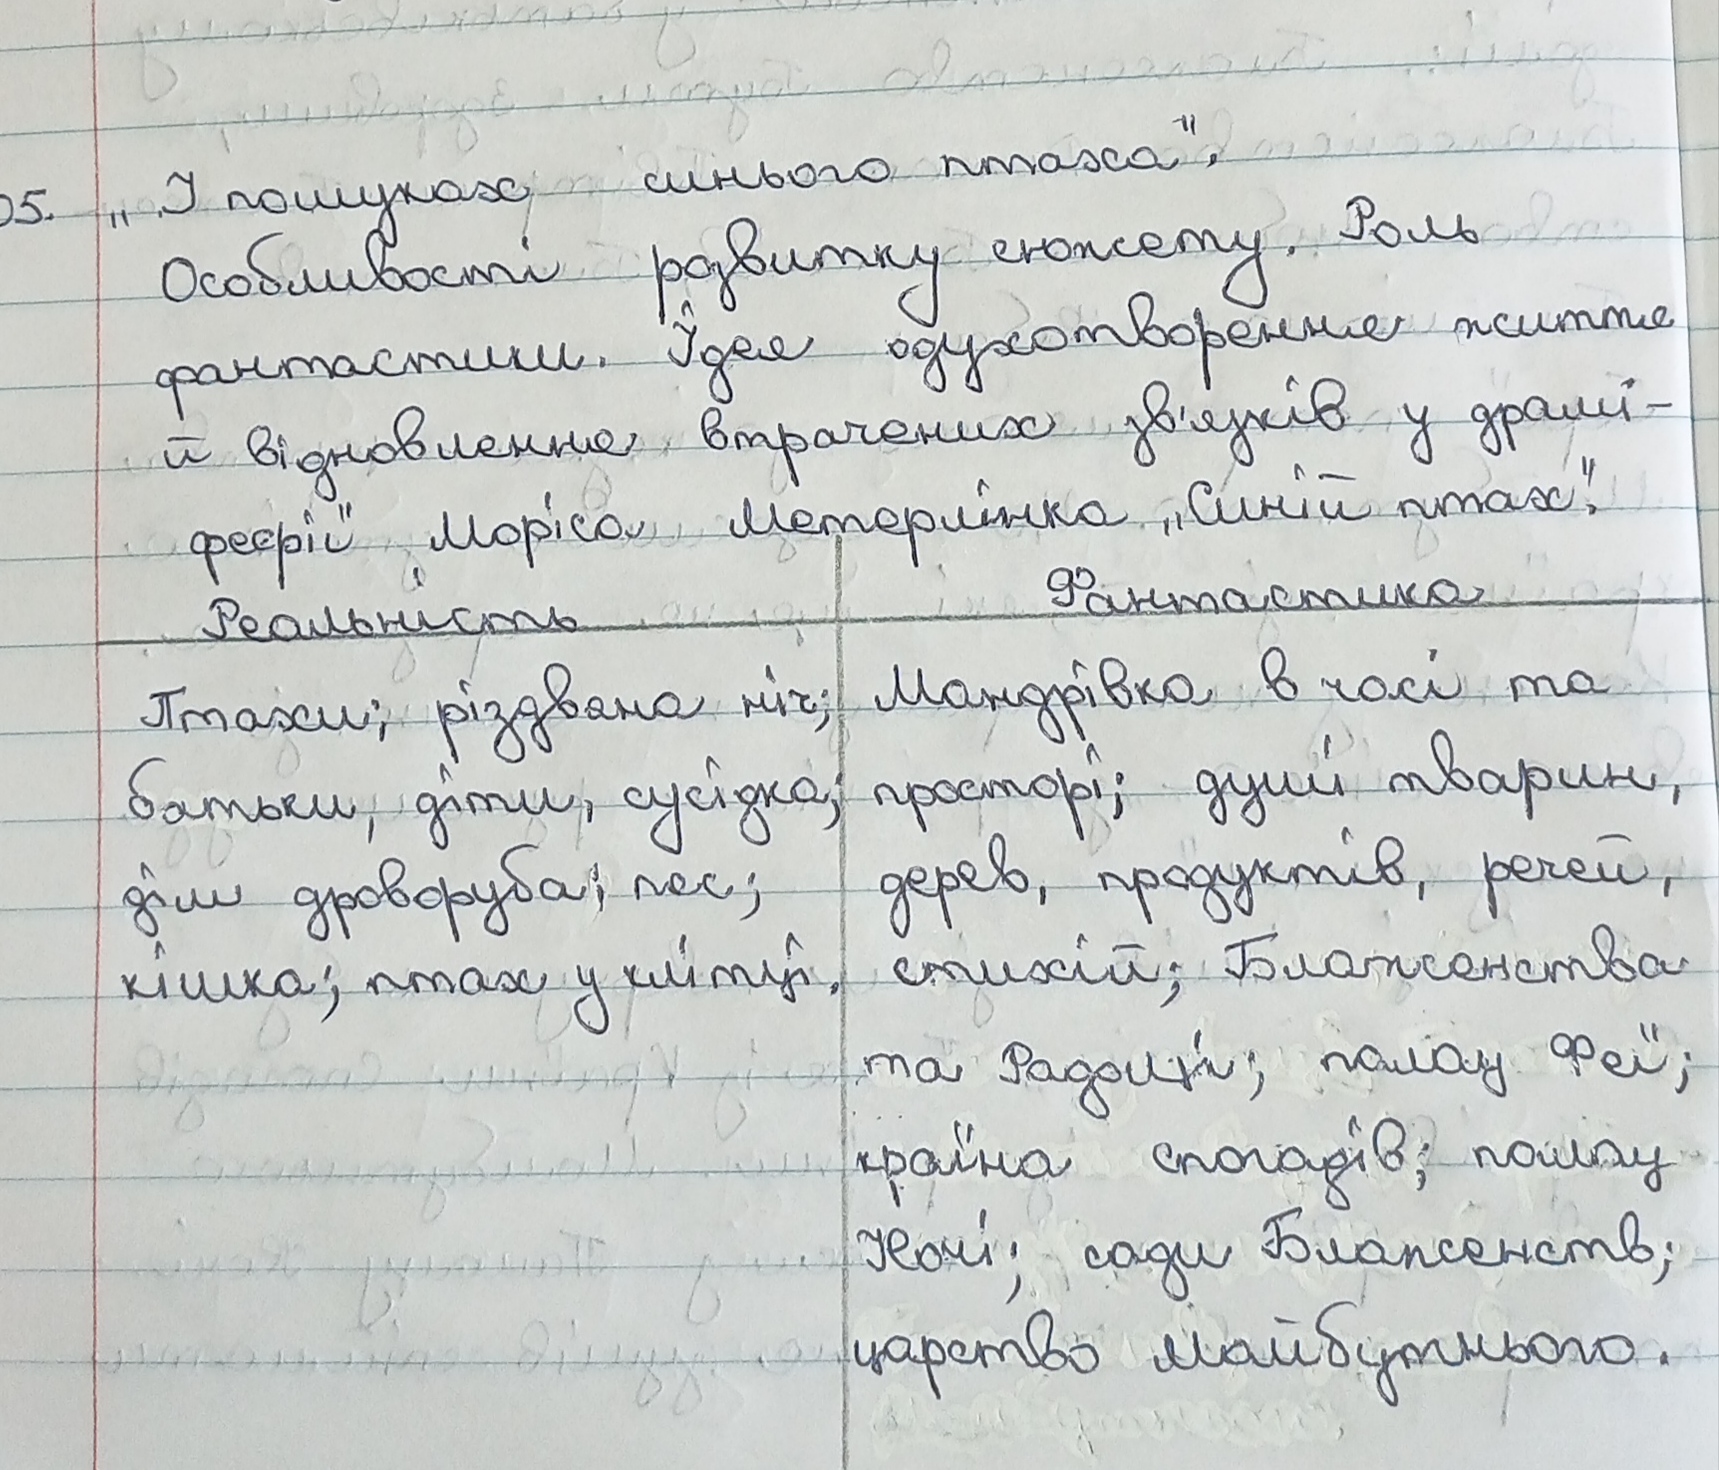 05. „У пошуках синього птаха".
Особливості розвитку сюжету. Роль
фантастики. Ідея одухотворення життя
й відновлення втрачених зв'язків у драмі-
феєрії Моріса Метерлінка „Синій птах".
Реальність Фантастика
Птахи; різдвяна ніч; Мандрівка в часі та
батьки, діти, сусідка; просторі; душі тварин,
дім дроворуба; пес; дерев, продуктів, речей,
кішка; птах у клітці. стихій; Блаженства
та Радощі; палац Феї;
країна спогадів; палац
Ночі; сади Блаженств;
царство Майбутнього.